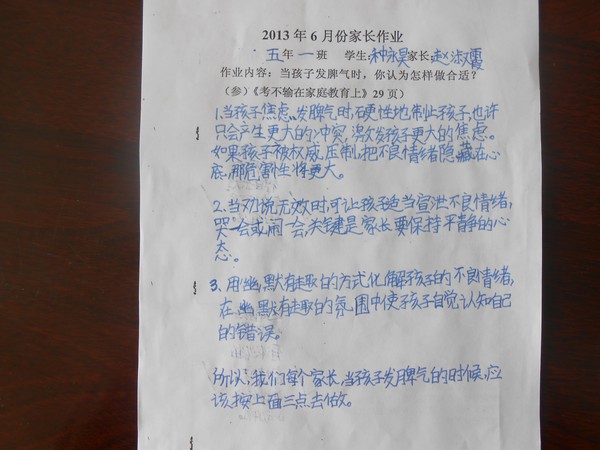 2013年6月份家长作业
五年一班 学生:种永昊家长:赵淑霞
作业内容：当孩子发脾气时，你认为怎样做合适？
（参）《考不输在家庭教育上》29页）
1.当孩子焦虑、发脾气时,硬性地制止孩子,也许
只会产生更大的冲突,激发孩子更大的焦虑。
如果孩子被权威压制,把不良情绪隐藏在心
底,那危害性将更大。
2.当劝说无效时,可让孩子适当宣泄不良情绪,
哭一会或闹一会,关键是家长要保持平静的心
态。
3.用幽默有趣的方式化解孩子的不良情绪,
在幽默有趣的氛围中使孩子自觉认知自己
的错误。
所以,我们每个家长,当孩子发脾气的时候,应
该按上面三点去做。